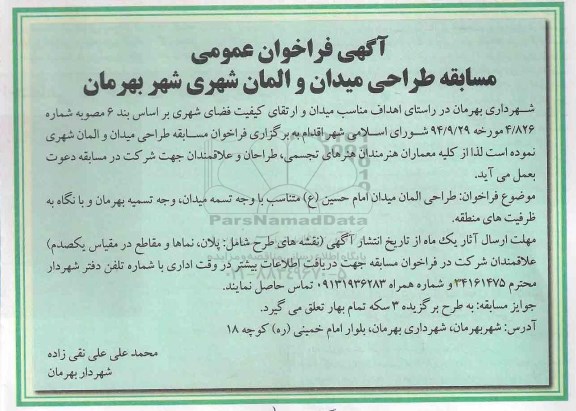 آگهی فراخوان عمومی
مسابقه طراحی میدان و المان شهری شهر بهرمان
شهرداری بهرمان در راستای اهداف مناسب میدان و ارتقای کیفیت فضای شهری بر اساس بند ۶ مصوبه شماره
۴/۸۲۶ مورخه ۹۴/۹/۲۹ شورای اسلامی شهر اقدام به برگزاری فراخوان مسابقه طراحی میدان و المان شهری
نموده است لذا از کلیه معماران هنرمندان هنرهای تجسمی، طراحان و علاقمندان جهت شرکت در مسابقه دعوت
بعمل می آید.
موضوع فراخوان: طراحی المان میدان امام حسین (ع) متناسب با وجه تسمه میدان، وجه تسمیه بهرمان و با نگاه به
ظرفیت های منطقه.
ParsNamadData
مهلت ارسال آثار یک ماه از تاریخ انتشار آگهی (نقشه های طرح شامل: پلان، نماها و مقاطع در مقیاس یکصدم)
علاقمندان شرکت در فراخوان مسابقه جهت دریافت اطلاعات بیشتر در وقت اداری با شماره تلفن دفتر شهردار
۰۲۱-۸۸۳۴۹۶۷۰-۵
محترم ۳۴۱۶۱۴۷۵ و شماره همراه ۰۹۱۳۱۹۳۶۲۸۳ تماس حاصل نمایند.
جوایز مسابقه: به طرح برگزیده ۳ سکه تمام بهار تعلق می گیرد.
آدرس: شهربهرمان، شهرداری بهرمان، بلوار امام خمینی (ره) کوچه ۱۸
محمد علی علی نقی زاده
شهردار بهرمان